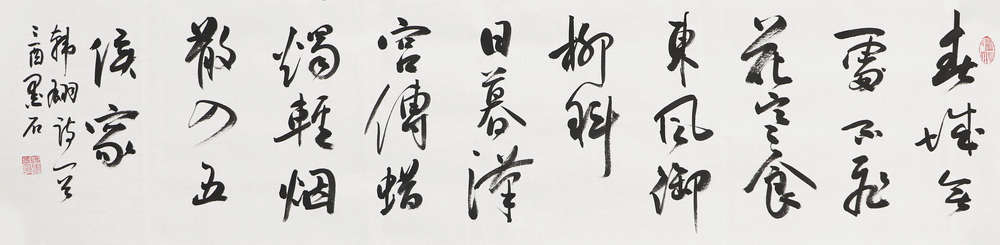 春城無
處不飛
花寒食
東風御
柳斜
日暮漢
宮傳蜡
燭輕烟
散入五
侯家
韓翃詩
酉墨石